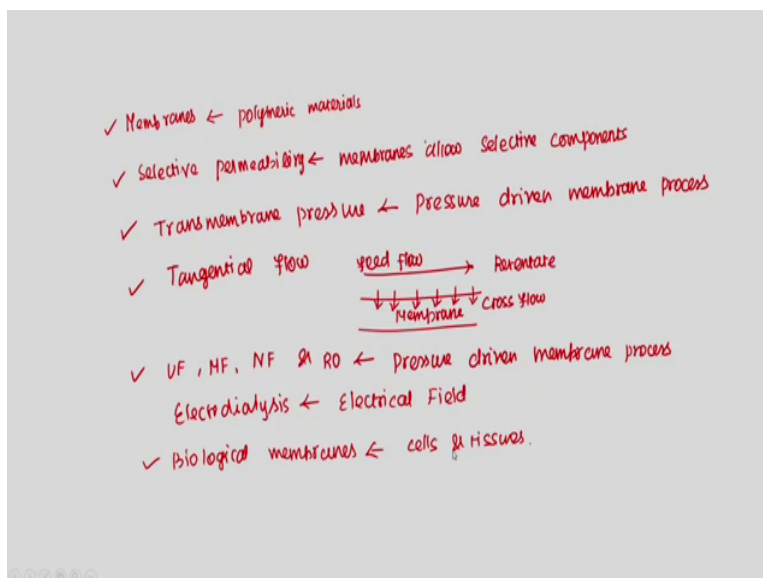 ✓ Membranes ← polymeric materials
✓ Selective permeability ← membranes allow selective components
✓ Transmembrane pressure ← Pressure driven membrane process
✓ Tangential flow
feed flow → Retentate
↓ ↓ ↓ ↓ ↓ ↓ Cross flow
Membrane
✓ UF, MF, NF & RO ← Pressure driven membrane process
Electrodialysis ← Electrical Field
✓ Biological membranes ← cells & tissues.